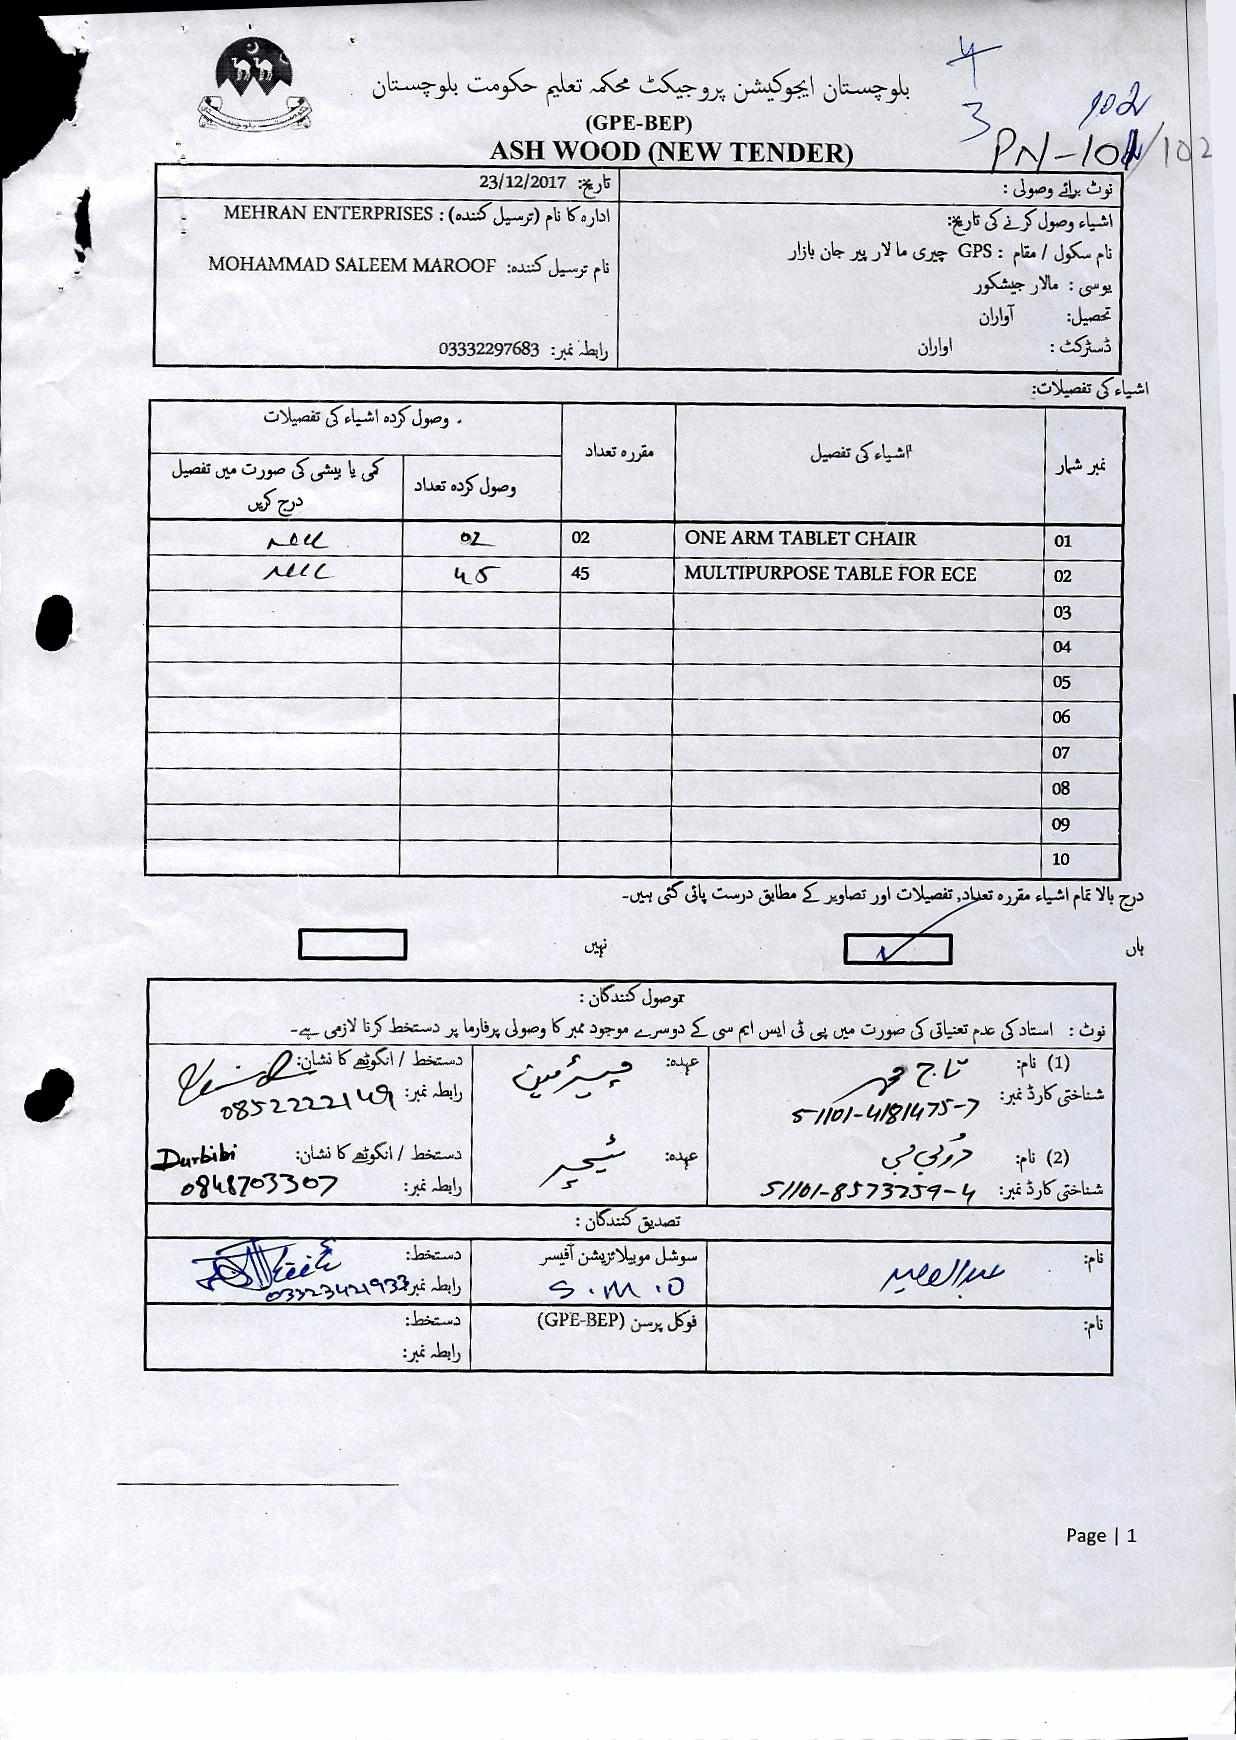 4
3
102
PN-101/102
بلوچستان ایجوکیشن پروجیکٹ محکمہ تعلیم حکومت بلوچستان
(GPE-BEP)
ASH WOOD (NEW TENDER)
نوٹ برائے وصولی :
تاریخ: 23/12/2017
اشیاء وصول کرنے کی تاریخ:
ادارہ کا نام (ترسیل کنندہ) : MEHRAN ENTERPRISES
نام سکول / مقام : GPS چیری مالار پیر جان بازار
نام ترسیل کنندہ: MOHAMMAD SALEEM MAROOF
یوسی : مالار جیشکور
تحصیل: آواران
ڈسٹرکٹ : اواران
رابطہ نمبر: 03332297683
اشیاء کی تفصیلات:
نمبر شمار اشیاء کی تفصیل مقررہ تعداد وصول کردہ اشیاء کی تفصیلات
وصول کردہ تعداد کمی یا بیشی کی صورت میں تفصیل درج کریں
01 ONE ARM TABLET CHAIR 02 02
02 MULTIPURPOSE TABLE FOR ECE 45 45
03
04
05
06
07
08
09
10
درج بالا تمام اشیاء مقررہ تعداد, تفصیلات اور تصاویر کے مطابق درست پائی گئی ہیں۔
ہاں نہیں
وصول کنندگان :
نوٹ : استاد کی عدم تعنیاتی کی صورت میں پی ٹی ایس ایم سی کے دوسرے موجود ممبر کا وصولی پرفارما پر دستخط کرنا لازمی ہے۔
(1) نام: تاج محمد عہدہ: چیئرمین دستخط / انگوٹھے کا نشان:
شناختی کارڈ نمبر: 51101-4181475-7 رابطہ نمبر: 0852222149
(2) نام: دُربی بی عہدہ: ٹیچر دستخط / انگوٹھے کا نشان: Durbibi
شناختی کارڈ نمبر: 51101-8573259-4 رابطہ نمبر: 0848703307
تصدیق کنندگان :
نام: سوشل موبیلائزیشن آفیسر دستخط:
S.M.O رابطہ نمبر: 03323421933
نام: فوکل پرسن (GPE-BEP) دستخط:
رابطہ نمبر:
Page | 1